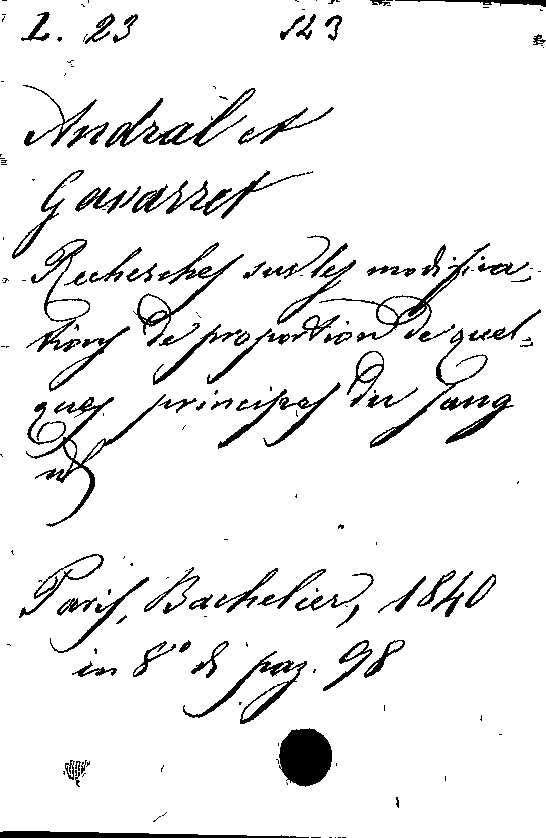 L. 23 143
Andral et
Gavarret
Recherches sur les modifica-
tions de proportion de quel-
ques principes du sang
Paris, Bachelier, 1840
in 8° di pag. 98